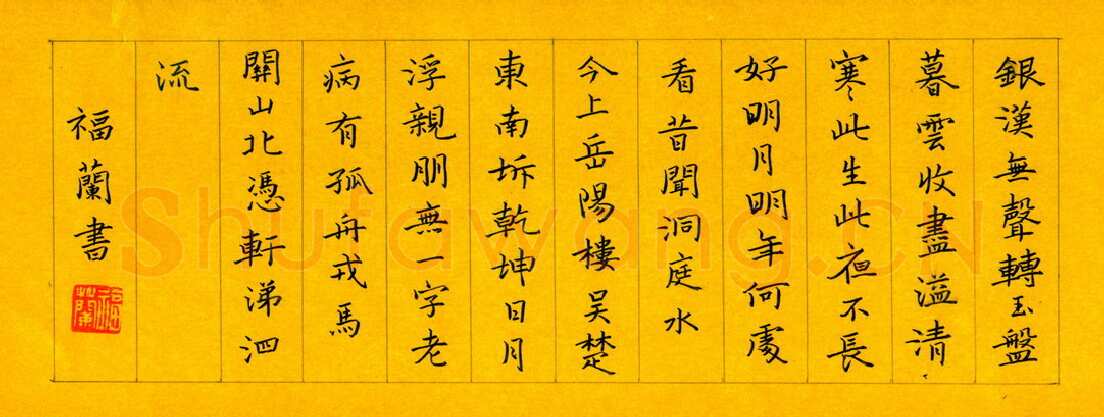 銀漢無聲轉玉盤
暮雲收盡溢清
寒此生此夜不長
好明月明年何處
看昔聞洞庭水
今上岳陽樓吳楚
東南坼乾坤日月
浮親朋無一字老
病有孤舟戎馬
關山北憑軒涕泗
流
福蘭書
Shufawang.CN